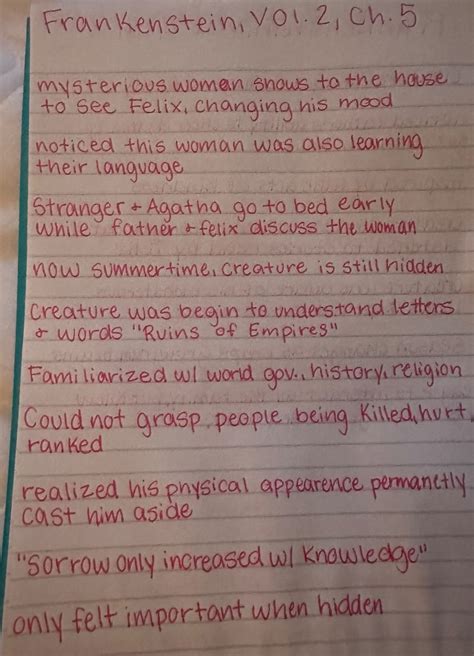 Frankenstein, Vol. 2, Ch. 5
mysterious woman shows to the house
to see Felix, changing his mood
noticed this woman was also learning
their language
Stranger + Agatha go to bed early
while father + felix discuss the woman
now summertime, creature is still hidden
Creature was begin to understand letters
+ words "Ruins of Empires"
Familiarized w/ world gov., history, religion
Could not grasp people being killed, hurt,
ranked
realized his physical appearence permanetly
cast him aside
"Sorrow only increased w/ knowledge"
only felt important when hidden